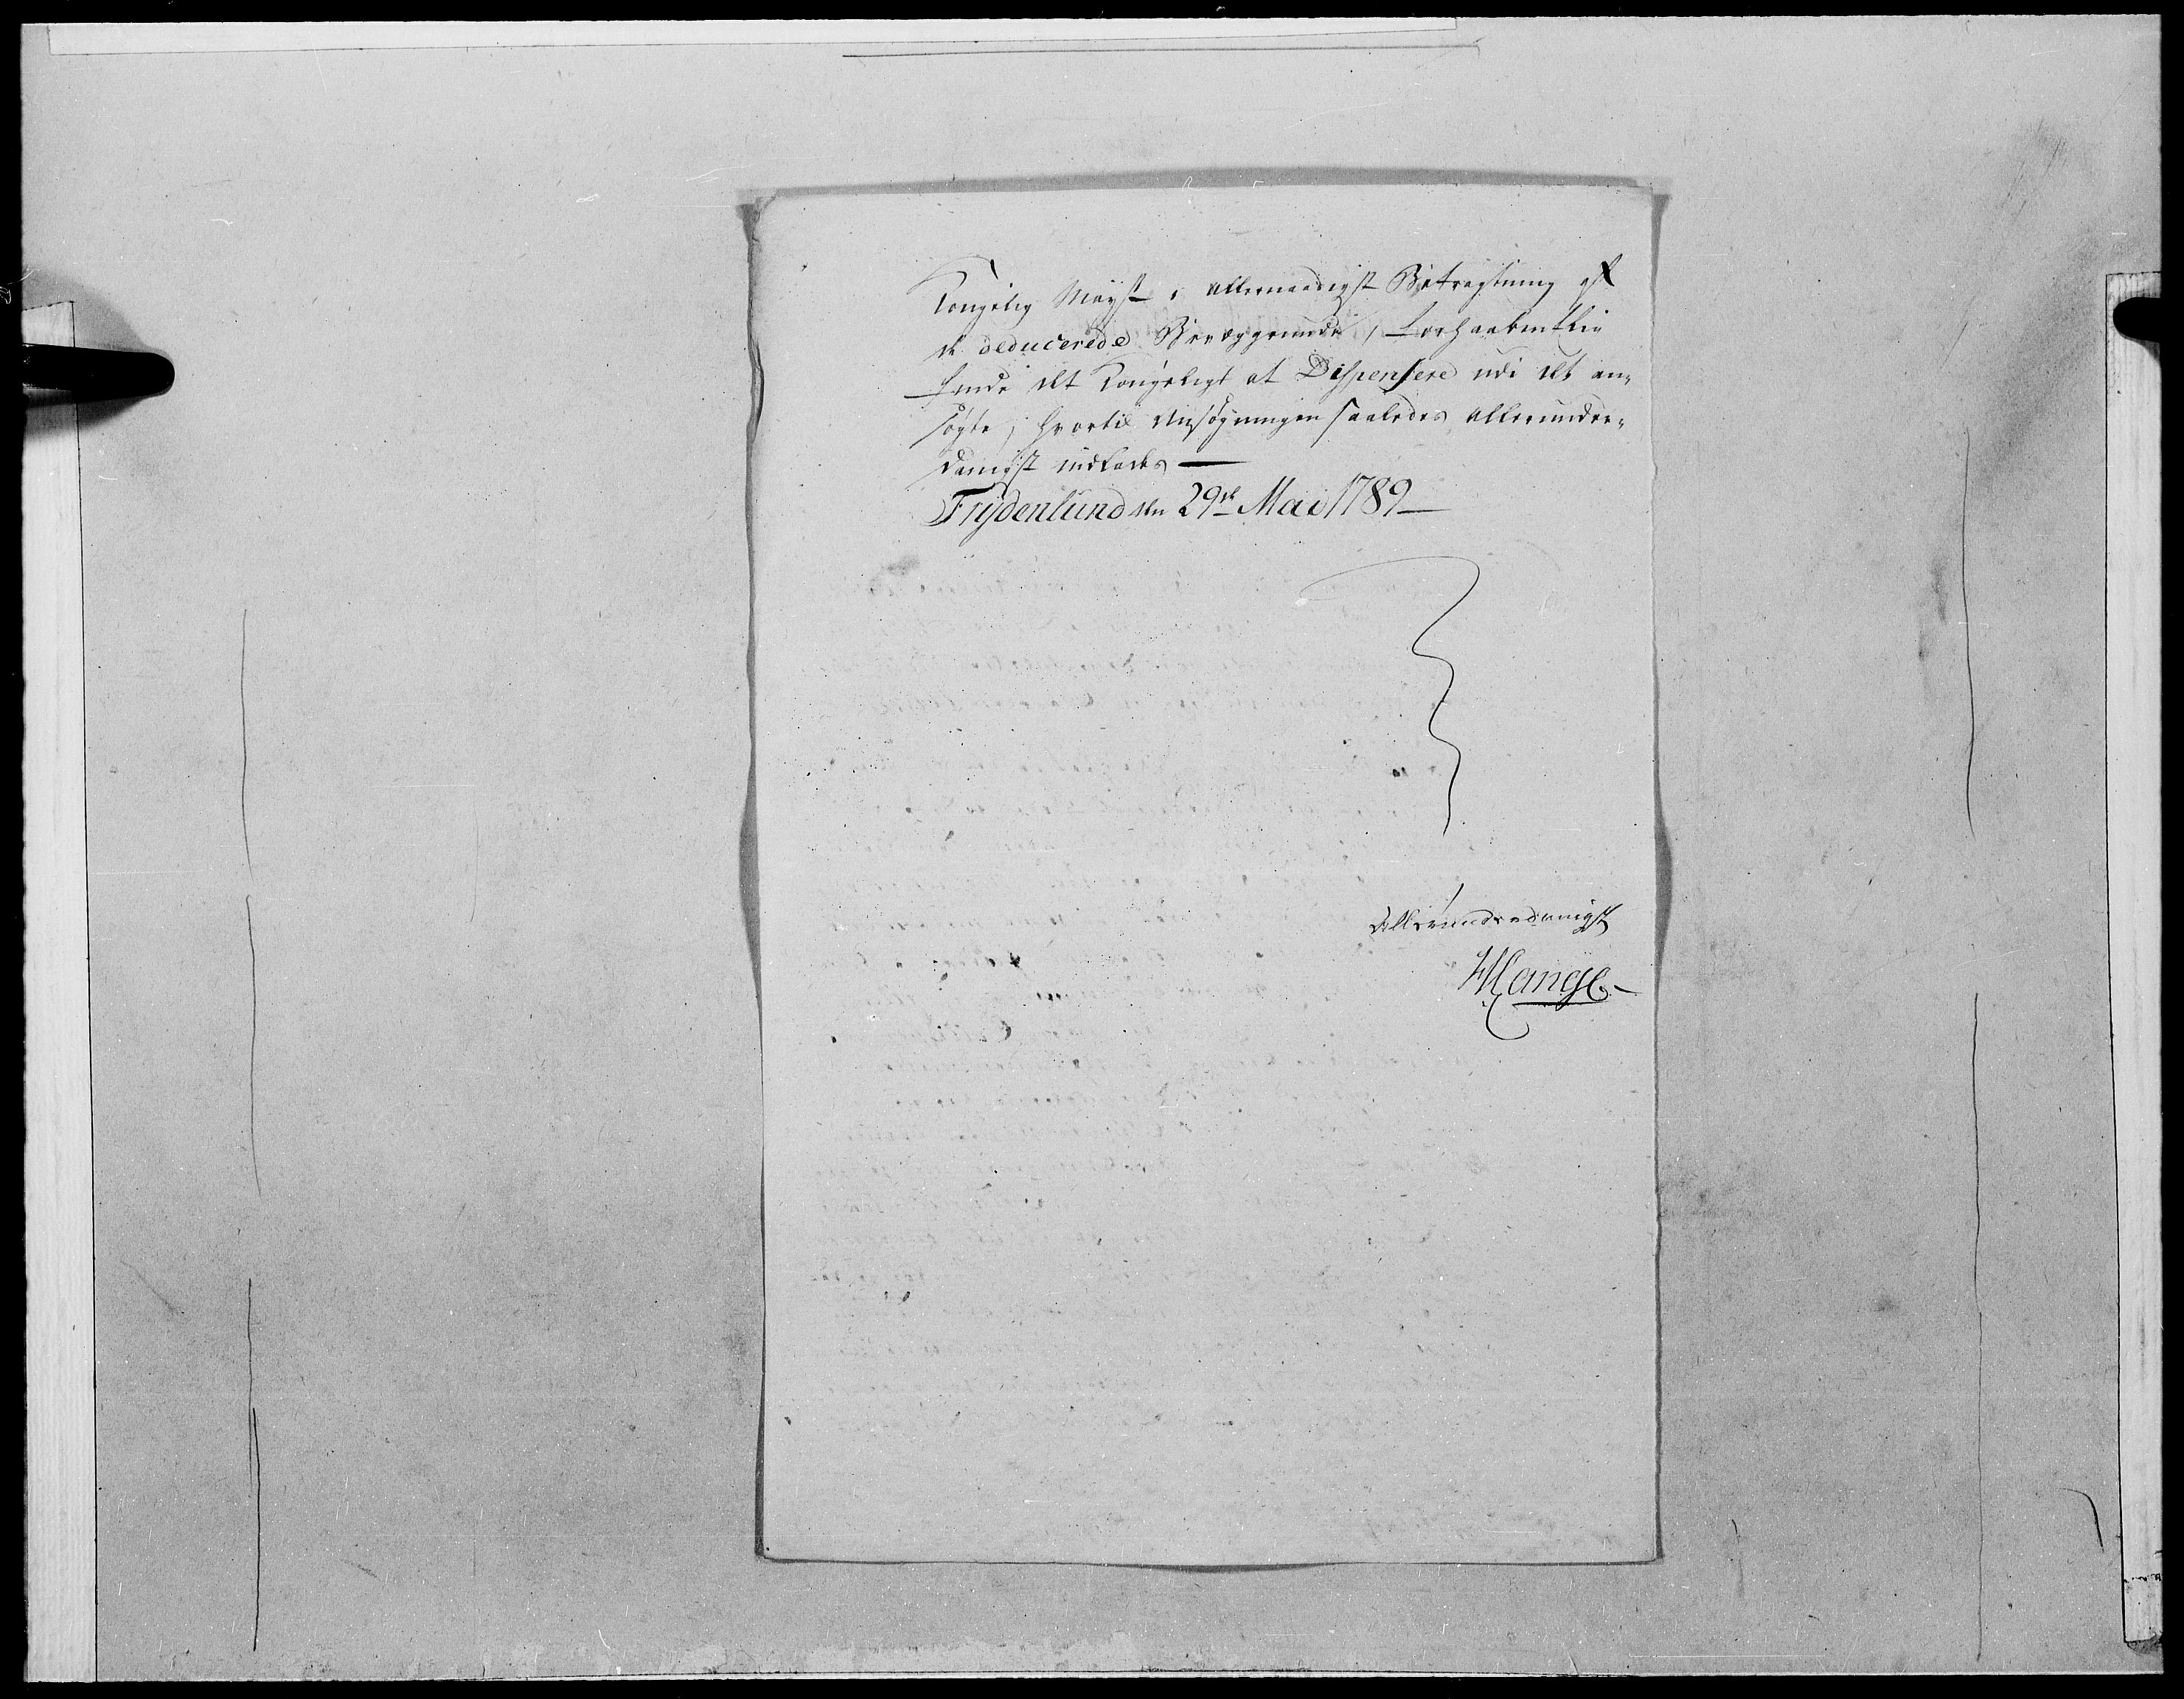 Kongelig Mayst i allernaadigst Betragtning af
de deducerede Bevæggrunde,
finde det Kongeligt at Dispensere udi det an„
søgte, hvortil Ansøgningen saaledes allerunder„
danigst indlades —
Frydenlund den 29de Mai 1789 —
Allerunderdanigst
HLange.